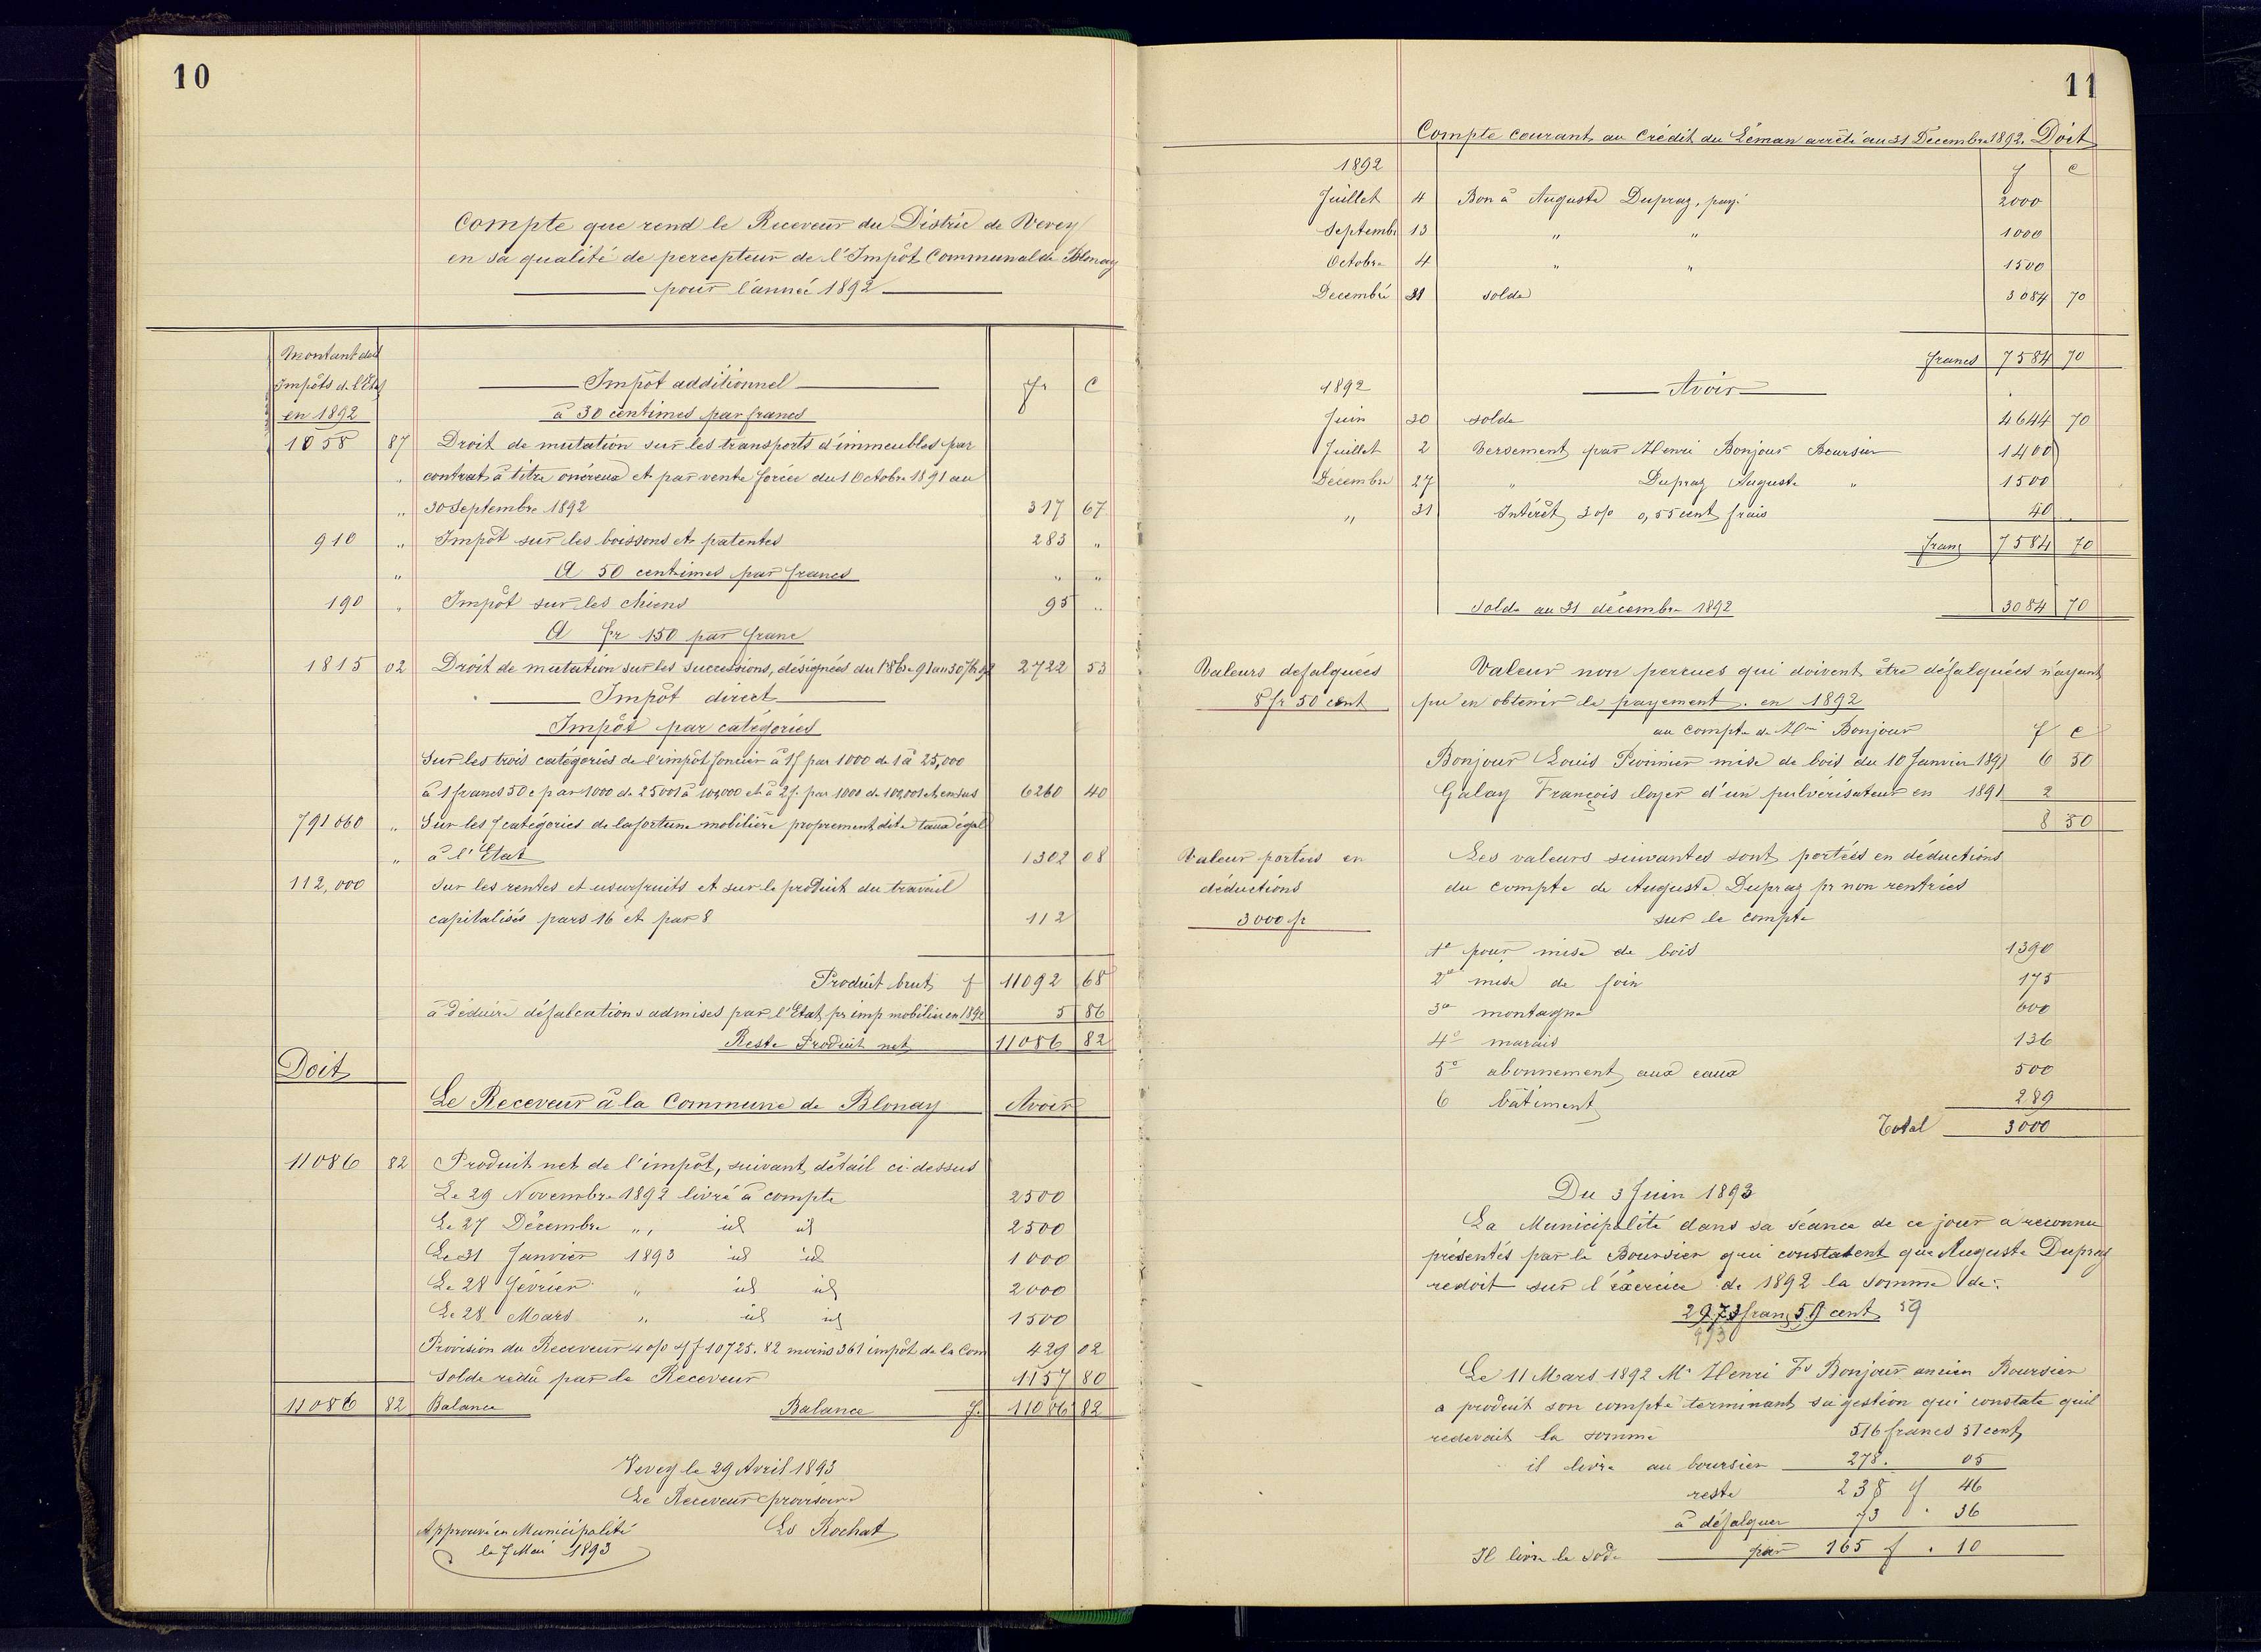 10
Compte que rend le Receveur du District de Vevey
en sa qualité de percepteur de l'Impôt Communal de Blonay
pour l'année 1892
Montant des
Impôts de l'Etat
en 1892
Impôt additionnel fr c
à 30 centimes par francs
1058 87 Droit de mutation sur les transports d'immeubles par
" contrat à titre onéreux et par vente forcée du 1 Octobre 1891 au
" 30 Septembre 1892 317 67
910 " Impôt sur les boissons et patentes 283 "
" A 50 centimes par francs " "
190 " Impôt sur les chiens 95 "
A fr 150 par franc
1815 02 Droit de mutation sur les successions, désignées du 1 8bre 91 au 30 7bre 92 2722 53
Impôt direct
Impôt par catégories
Sur les trois catégories de l'impôt foncier à 1f par 1000 de 1 à 25,000
à 1 francs 50 c par 1000 de 25001 à 100,000 et à 2f. par 1000 de 100,001 et en sus 6260 40
791060 " Sur les 7 catégories de la fortune mobilière proprement dite taux égal
" à l'Etat 1302 08
112,000 Sur les rentes et usurfruits et sur le produit du travail
capitalisés pars 16 et par 8 112
Produit brut f 11092 68
à Déduire défalcations admises par l'Etat pr imp mobilier en 1892 5 86
Reste Produit net 11086 82
Doit
Le Receveur à la Commune de Blonay Avoir
11086 82 Produit net de l'impôt, suivant détail ci-dessus
Le 29 Novembre 1892 livré à compte 2500
Le 27 Décembre " id id 2500
Le 31 Janvier 1893 id id 1000
Le 28 Février " id id 2000
Le 28 Mars " id id 1500
Provision du Receveur 4 o/o s/f 10725.82 moins 361 impôt de la Com 429 02
Solde redû par le Receveur 1157 80
11086 82 Balance Balance f. 11086 82
Vevey le 29 Avril 1893
Le Receveur provisoire
Approuvé en Municipalité Ls Rochat
le 7 Mai 1893
11
Compte courant au Crédit du Léman arrêté au 31 Décembre 1892. Doit
1892 f c
Juillet 4 Bon à Auguste Dupraz, payé 2000
Septembre 13 " " 1000
Octobre 4 " " 1500
Decembre 31 solde 3084 70
francs 7584 70
1892 Avoir
Juin 30 solde 4644 70
Juillet 2 Versement par Henri Bonjour Boursier 1400
Décembre 27 " Dupraz Auguste " 1500
" 31 Intérêt 3 o/o 0,55 cent frais 40
Franc 7584 70
Solde au 31 décembre 1892 3084 70
Valeurs defalquées
8 fr 50 cent
Valeur non percues qui doivent être défalquées n'ayant
pu en obtenir le payement. en 1892
au compte de Hri Bonjour f c
Bonjour Louis Pionnier mise de bois du 10 Janvier 1891 6 50
Galay François loyer d'un pulvérisateur en 1891 2
8 50
Valeur portées en
déductions
3000 fr
Les valeurs suivantes sont portées en déductions
du compte de Auguste Dupraz pr non rentrées
sur le compte
1o pour mise de bois 1390
2o mise de foin 175
3o montagne 600
4o marais 136
5o abonnement aux eaux 500
6 bâtiment 289
Total 3000
Du 3 Juin 1893
La Municipalité dans sa séance de ce jour a reconnu
présentés par le Boursier qui constatent que Auguste Dupraz
redoit sur l'éxercice de 1892 la somme de:
2973 franc 59 cent 59
973
Le 11 Mars 1892 Mr Henri Fs Bonjour ancien Boursier
a produit son compte terminant sa gestion qui constate quil
redevait la somme 516 francs 51 cent
il livre au boursier 278. 05
reste 238 f 46
à défalquer 73 . 36
Il livre le sode par 165 f . 10